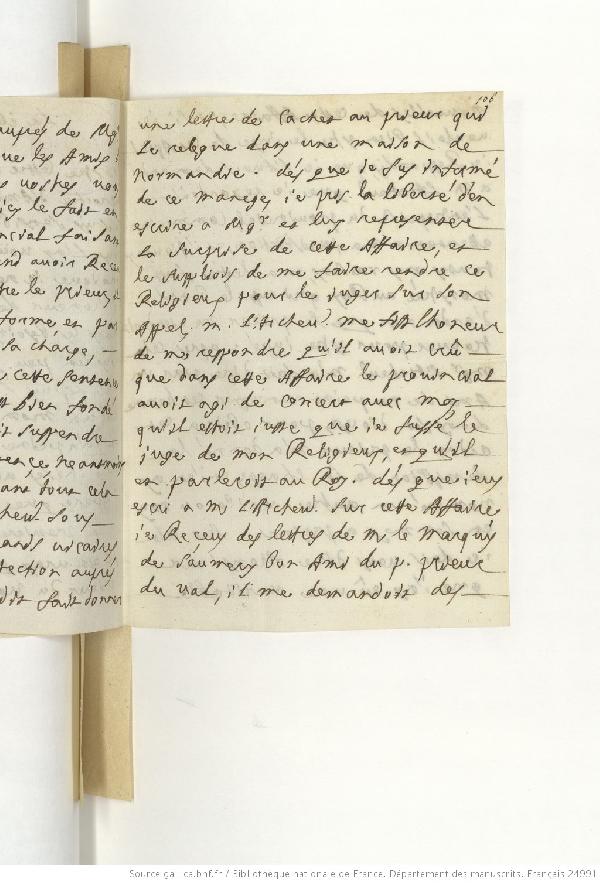 auprés de Mgr
que les Amis
vostres
le fait en
ncial faisan
and avoir Rece
re le prieur,
forme en par
sa charge, —
cette sentence
bien fondé
suspendre
neantmoins
tout cela
cheu. sous —
ands vicaires
tection auprés
dit fait donner
106
une lettre de Cachet au prieur qui
Le relegue dans une maison de
Normandie. dés que ie fus informé
de ce manege, ie pris la liberté d'en
escrire a Mgr et luy representer
La surprise de cette Affaire, et
le supliois de me faire rendre ce
Religieux pour le iuger sur son
Appel, m. L'Archeu. me fist lhoneur
de me respondre qu'il auoit crû —
que dans cette Affaire le prouincial
auoit agi de concert auec moy —
qu'il estoit iuste que ie fusse le
iuge de mon Religieux, et qu'il
en parleroit au Roy. dés que i'eus
escri a m. L'Archeu. sur cette Affaire
ie Receus des lettres de m. le Marquis
de Saumery bon Ami du p. prieur
du val, il me demandoit des
Source gallica.bnf.fr / Bibliothèque nationale de France. Département des manuscrits. Français 24991